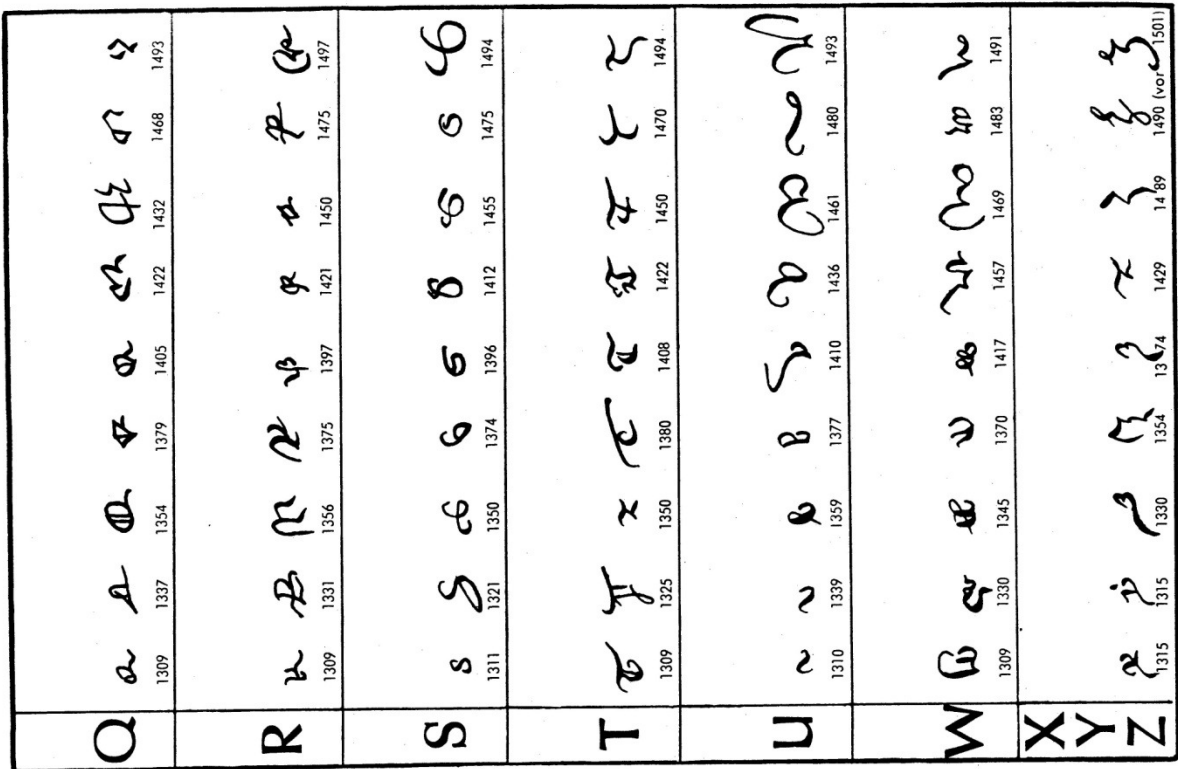 Q 1309 1337 1354 1379 1405 1422 1432 1468 1493
R 1309 1331 1356 1375 1397 1421 1450 1475 1497
S 1311 1321 1350 1374 1396 1412 1455 1475 1494
T 1309 1325 1350 1380 1408 1422 1450 1470 1494
U 1310 1339 1359 1377 1410 1436 1461 1480 1493
W 1309 1330 1345 1370 1417 1457 1469 1483 1491
X
Y
Z 1315 1315 1330 1354 1374 1429 1489 1490 (vor 1501)